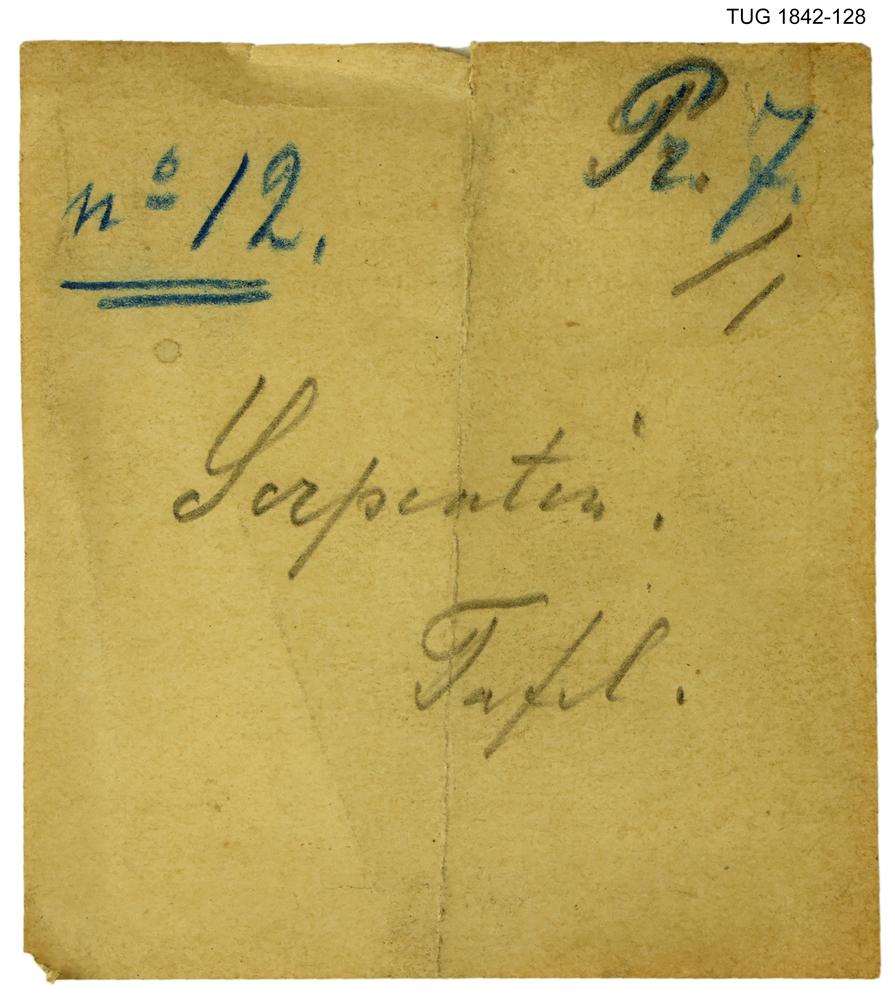 TUG 1842-128
nº 12.
Pr. 7.
/1
Serpentin.
Tafel.